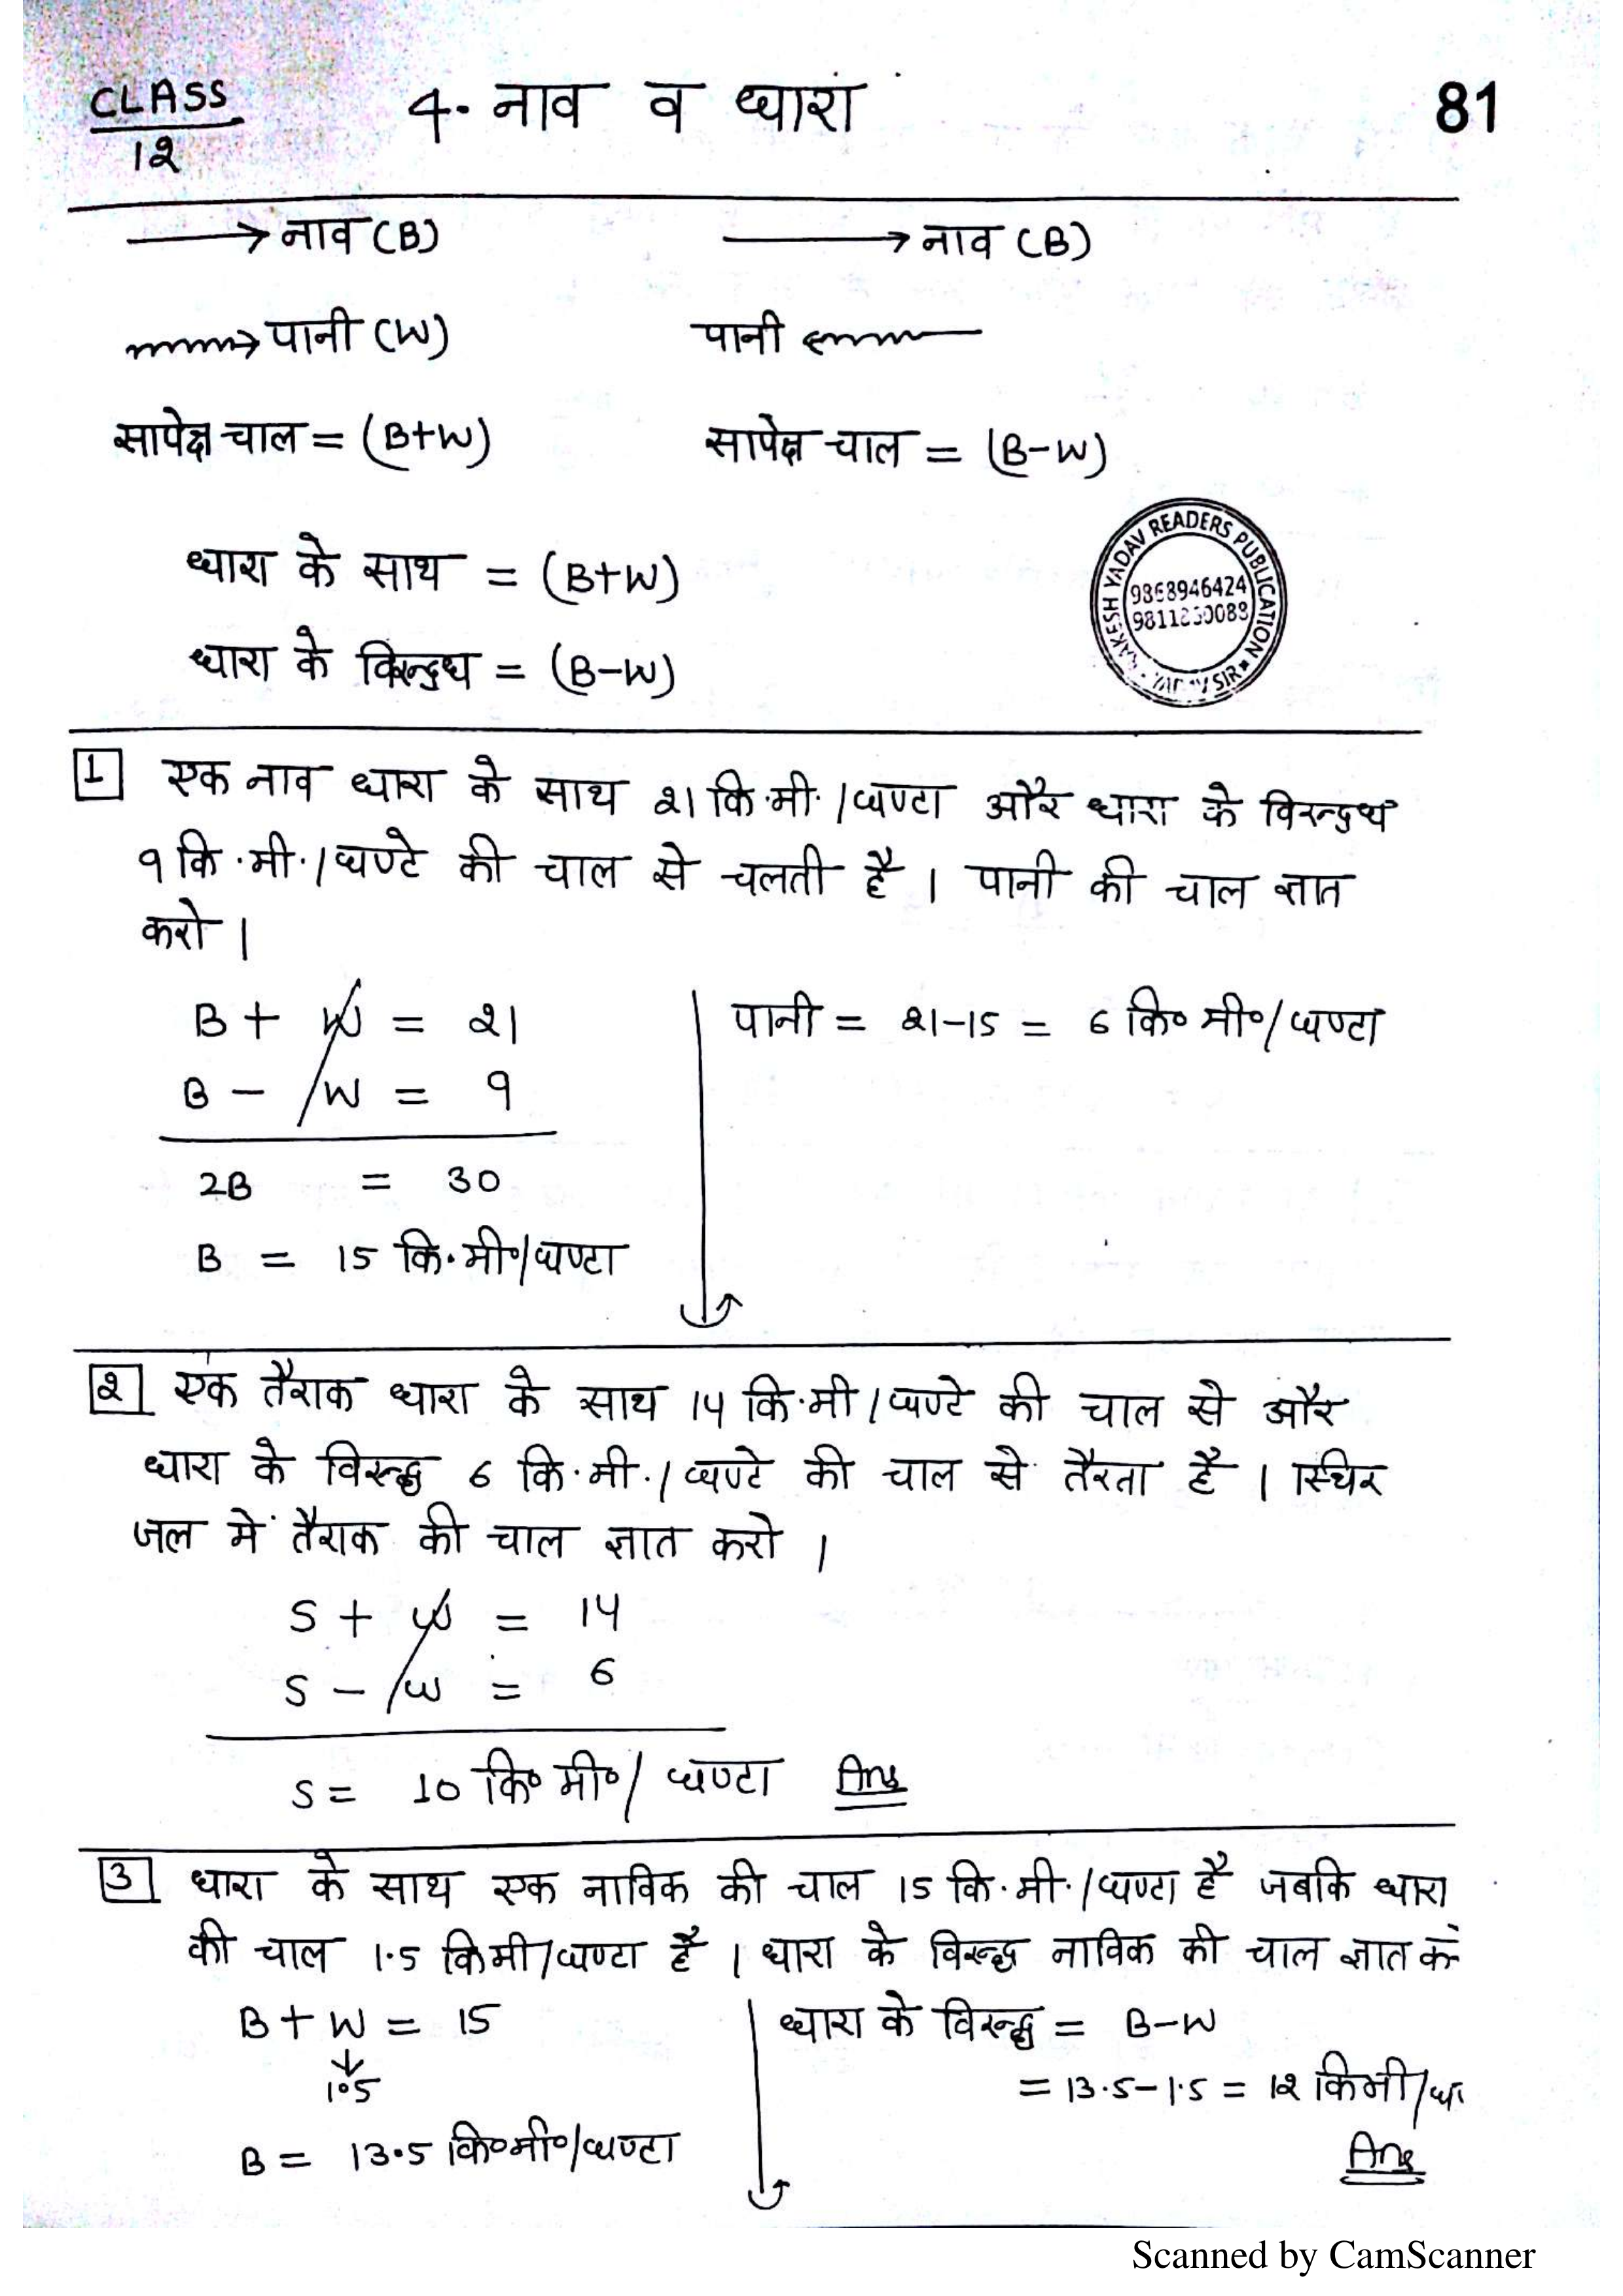 CLASS
12
4. नाव व धारा
81
→ नाव (B)
→ नाव (B)
→ पानी (W)
पानी ←
सापेक्ष चाल = (B+W)
सापेक्ष चाल = (B-W)
धारा के साथ = (B+W)
धारा के विरुद्ध = (B-W)
YADAV READERS PUBLICATION
9868946424
SIR
1 एक नाव धारा के साथ 21 कि.मी./घण्टा और धारा के विरुद्ध
9 कि.मी./घण्टे की चाल से चलती है। पानी की चाल ज्ञात
करो।
B + W = 21
B - W = 9
2B = 30
B = 15 कि.मी०/घण्टा
पानी = 21-15 = 6 कि० मी०/घण्टा
2 एक तैराक धारा के साथ 14 कि.मी/घण्टे की चाल से और
धारा के विरुद्ध 6 कि.मी./घण्टे की चाल से तैरता है। स्थिर
जल में तैराक की चाल ज्ञात करो।
S + W = 14
S - W = 6
S = 10 कि० मी०/घण्टा Ans
3 धारा के साथ एक नाविक की चाल 15 कि.मी./घण्टा है जबकि धारा
की चाल 1.5 किमी/घण्टा है। धारा के विरुद्ध नाविक की चाल ज्ञात करें
B + W = 15
↓
1.5
B = 13.5 कि०मी०/घण्टा
धारा के विरुद्ध = B-W
= 13.5-1.5 = 12 किमी/घं
Ans
Scanned by CamScanner